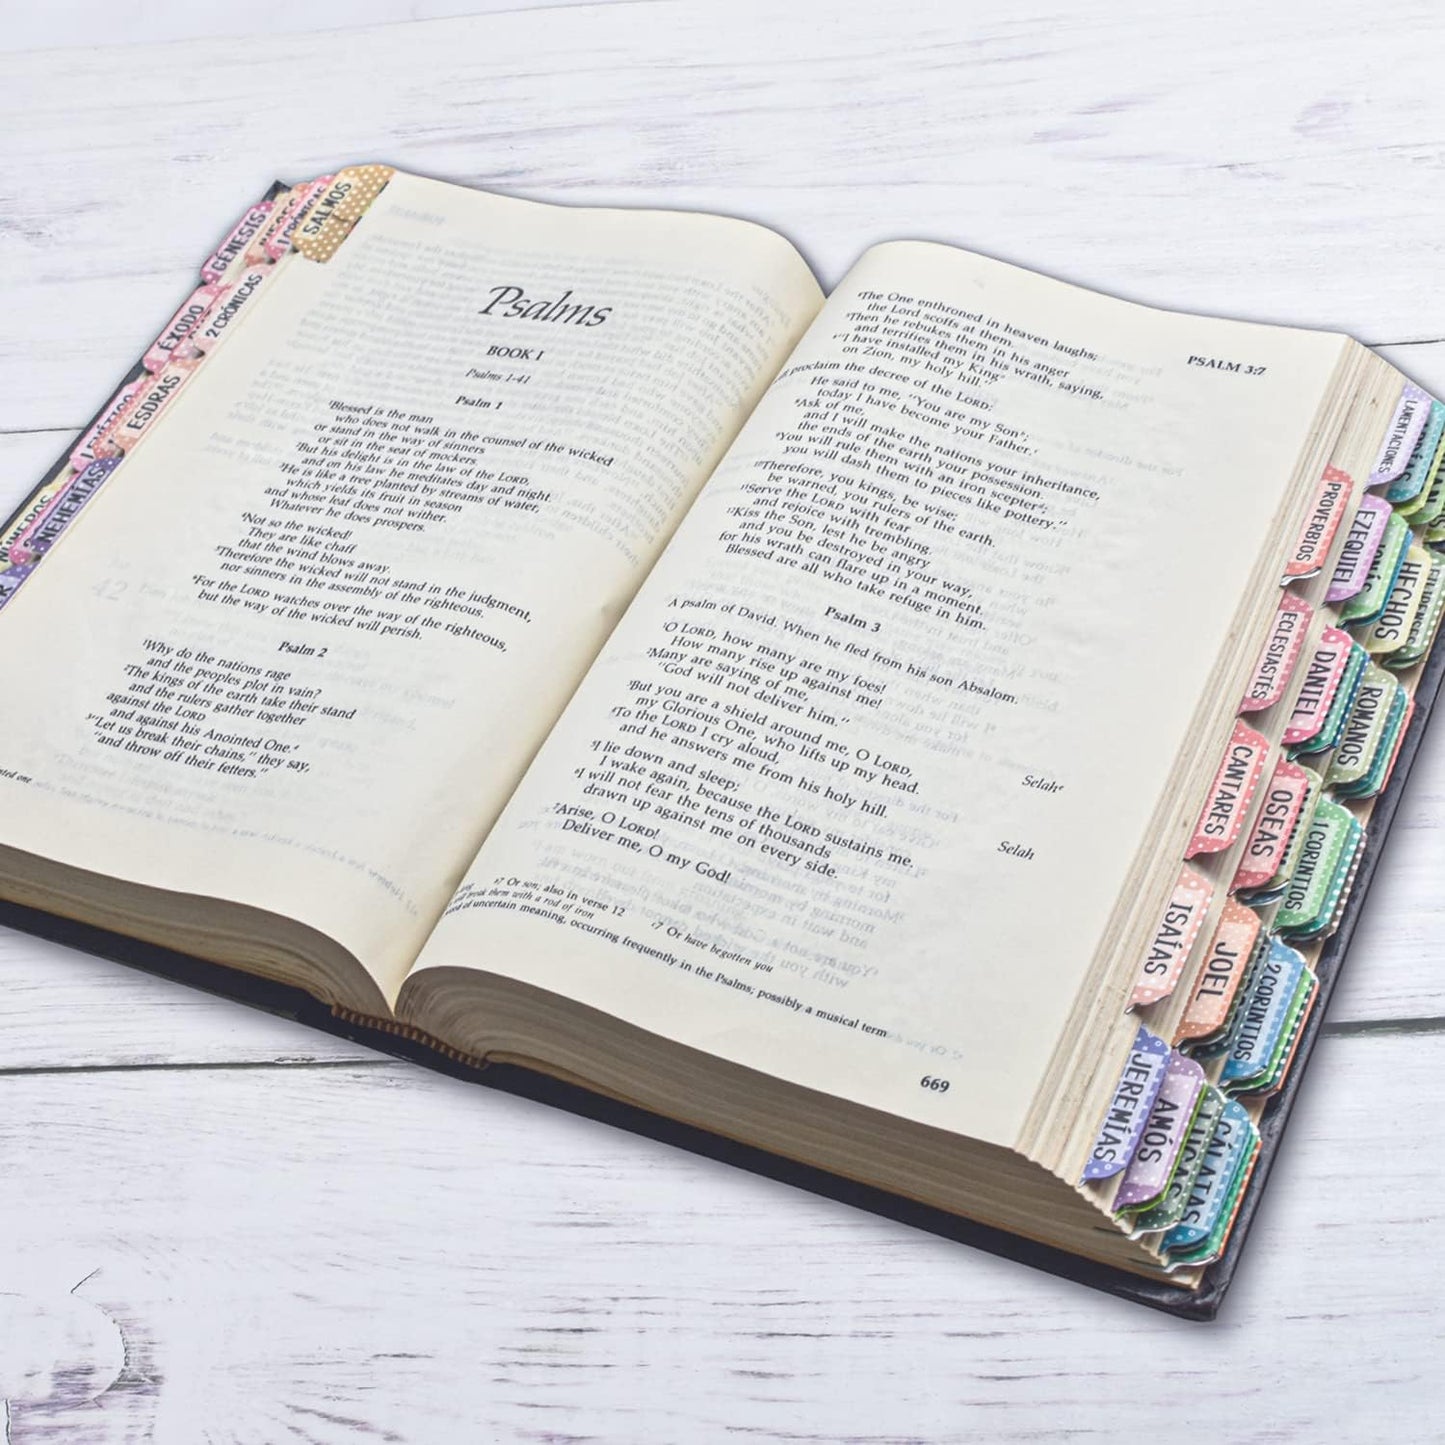 GÉNESIS
1 CRÓNICAS
SALMOS
ÉXODO
2 CRÓNICAS
ESDRAS
NEHEMIAS
Psalms
BOOK I
Psalms 1-41
Psalm 1
¹Blessed is the man
who does not walk in the counsel of the wicked
or stand in the way of sinners
or sit in the seat of mockers.
²But his delight is in the law of the LORD,
and on his law he meditates day and night.
³He is like a tree planted by streams of water,
which yields its fruit in season
and whose leaf does not wither.
Whatever he does prospers.
⁴Not so the wicked!
They are like chaff
that the wind blows away.
⁵Therefore the wicked will not stand in the judgment,
nor sinners in the assembly of the righteous.
⁶For the LORD watches over the way of the righteous,
but the way of the wicked will perish.
Psalm 2
¹Why do the nations rage
and the peoples plot in vain?
²The kings of the earth take their stand
and the rulers gather together
against the LORD
and against his Anointed One.
"Let us break their chains," they say,
"and throw off their fetters."
one.
PSALM 3:7
⁴The One enthroned in heaven laughs;
the Lord scoffs at them.
⁵Then he rebukes them in his anger
and terrifies them in his wrath, saying,
"I have installed my King
on Zion, my holy hill."
proclaim the decree of the LORD:
He said to me, "You are my Son;
today I have become your Father.
⁸Ask of me,
and I will make the nations your inheritance,
the ends of the earth your possession.
⁹You will rule them with an iron scepter;
you will dash them to pieces like pottery."
¹⁰Therefore, you kings, be wise;
be warned, you rulers of the earth.
¹¹Serve the LORD with fear
and rejoice with trembling.
¹²Kiss the Son, lest he be angry
and you be destroyed in your way,
for his wrath can flare up in a moment.
Blessed are all who take refuge in him.
Psalm 3
A psalm of David. When he fled from his son Absalom.
¹O LORD, how many are my foes!
How many rise up against me!
²Many are saying of me,
"God will not deliver him." Selah
³But you are a shield around me, O LORD,
my Glorious One, who lifts up my head.
⁴To the LORD I cry aloud,
and he answers me from his holy hill. Selah
⁵I lie down and sleep;
I wake again, because the LORD sustains me.
⁶I will not fear the tens of thousands
drawn up against me on every side.
⁷Arise, O LORD!
Deliver me, O my God!
7 Or son; also in verse 12
break them with a rod of iron
7 Or have begotten you
of uncertain meaning, occurring frequently in the Psalms; possibly a musical term
669
LAMENTACIONES
PROVERBIOS
EZEQUIEL
HECHOS
ECLESIASTÉS
DANIEL
ROMANOS
CANTARES
OSEAS
1 CORINTIOS
ISAÍAS
JOEL
2CORINTIOS
JEREMÍAS
AMÓS
LUCAS
GÁLATAS